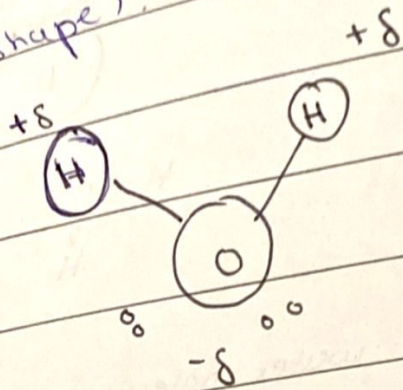 shape)
+δ
+δ
H
H
O
-δ